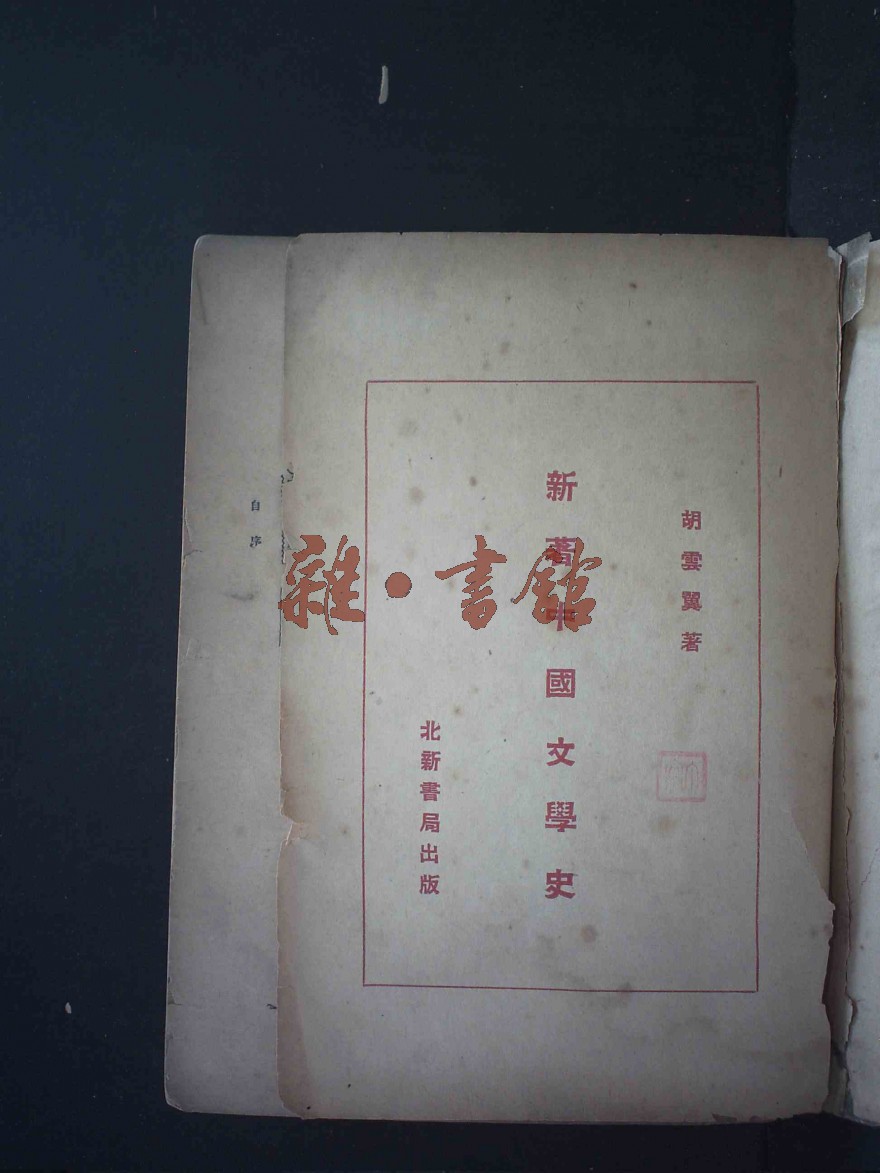 胡雲翼著
新著中國文學史
北新書局出版
自序
雜·書館